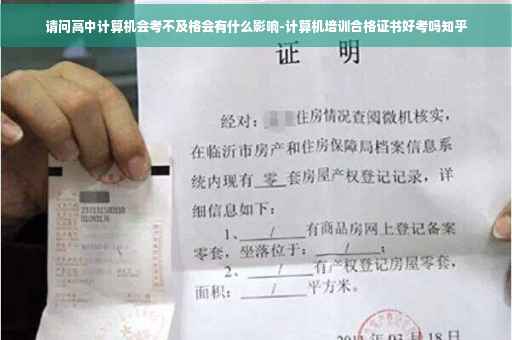 请问高中计算机会考不及格会有什么影响-计算机培训合格证书好考吗知乎
证 明
经对：住房情况查阅微机核实，
在临沂市房产和住房保障局档案信息系
统内现有 零 套房屋产权登记记录，详
细信息如下：
1、 / 有商品房网上登记备案
零套，坐落位于： / ；
2、 / 有产权登记房屋零套，
面积： / 平方米。
03 月 18 日